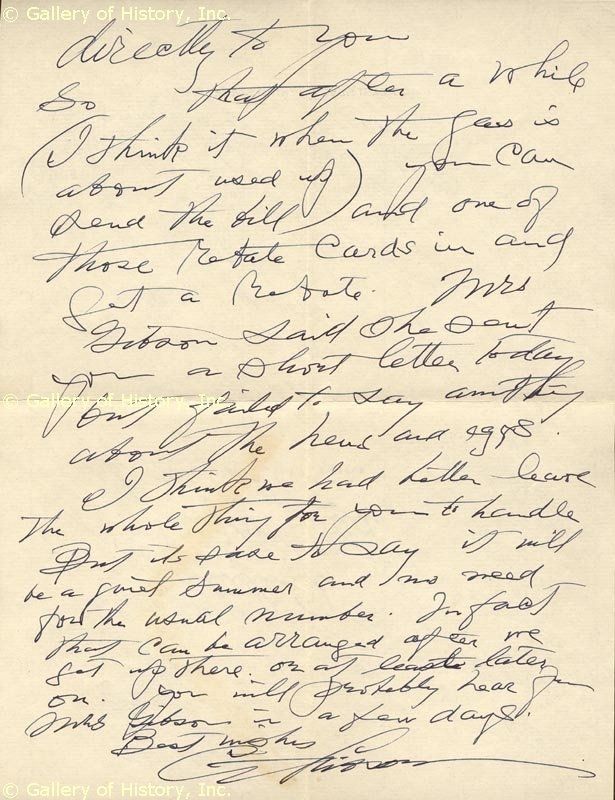 © Gallery of History, Inc.
directly to you
So that after a while
(I think it when the gas is
about used up) you can
send the bill and one of
those rebate cards in and
get a rebate. Mrs
Gibson said she sent
you a short letter today
but failed to say anything
© Gallery of History, Inc.
about the hens and eggs.
I think we had better leave
the whole thing for you to handle
But its safe to say it will
be a quiet summer and no need
for the usual number. In fact
that can be arranged after we
get up there or at least later
on. You will probably hear from
Mrs Gibson in a few days.
Best wishes
C Gibson
© Gallery of History, Inc.